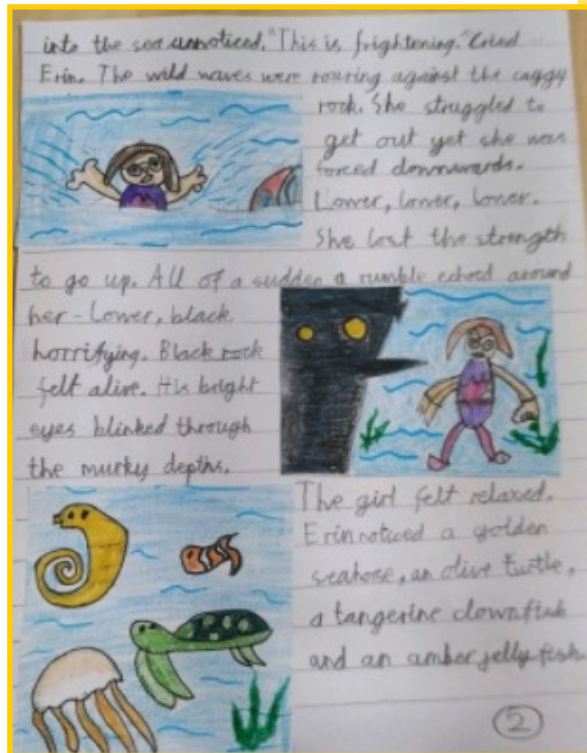 into the sea unnoticed. "This is frightening." Cried
Erin. The wild waves were roaring against the caggy
rock. She struggled to
get out yet she was
forced downwards.
Lower, lower, lower.
She lost the strength
to go up. All of a sudden a rumble echoed around
her - Lower, black,
horrifying. Black rock
felt alive. His bright
eyes blinked through
the murky depths.
The girl felt relaxed.
Erin noticed a golden
seahose, an olive turtle,
a tangerine clownfish
and an amber jelly fish.
2